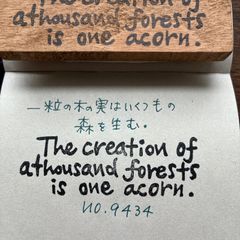 The creation of
a thousand forests
is one acorn.
一粒の木の実はいくつもの
森を生む.
The creation of
a thousand forests
is one acorn.
no.9434